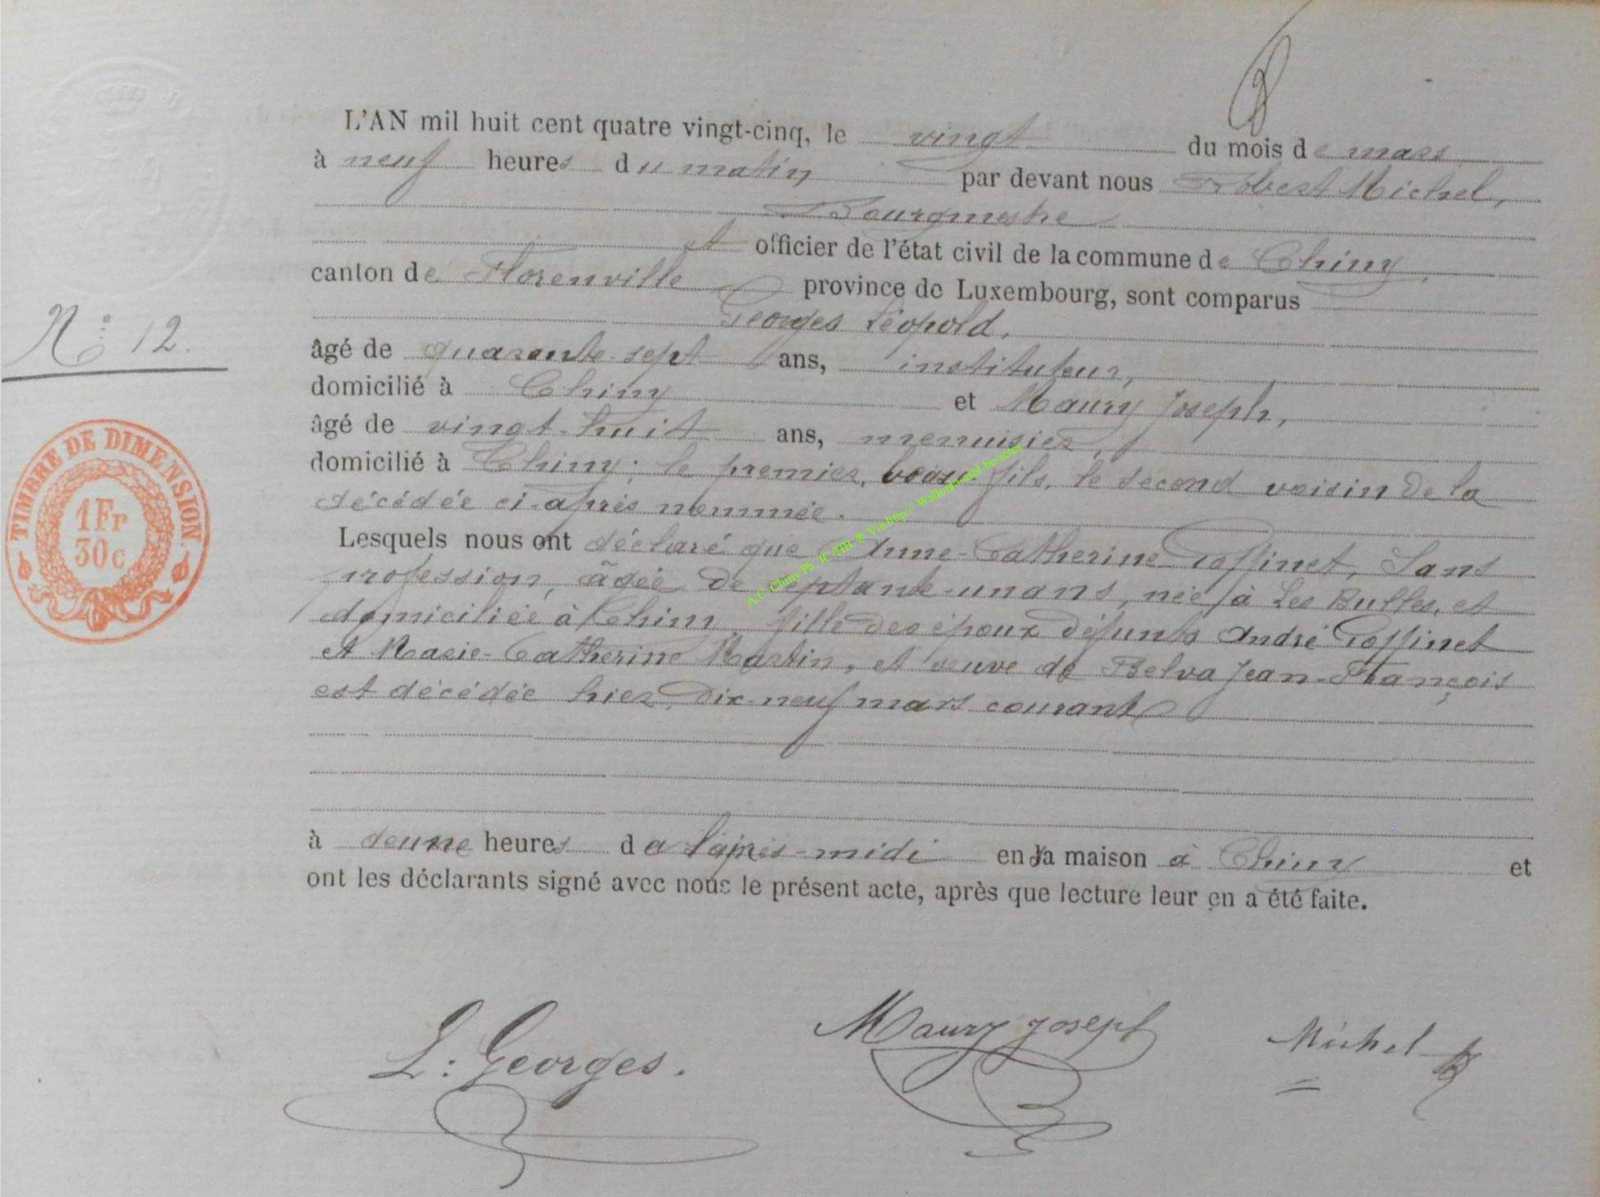 L'AN mil huit cent quatre vingt-cinq, le vingt du mois de mars
à neuf heures du matin par devant nous Robert Michel,
Bourgmestre
et officier de l'état civil de la commune de Chiny,
canton de Florenville province de Luxembourg, sont comparus
Georges Léopold,
N° 12.
âgé de quarante-sept ans, instituteur,
domicilié à Chiny et Maury Joseph,
âgé de vingt-huit ans, menuisier,
domicilié à Chiny; le premier, beau fils, le second voisin de la
décédée ci-après nommée.
TIMBRE DE DIMENSION
1 Fr
30 c
Lesquels nous ont déclaré que Anne-Catherine Poffinet, Sans
profession, âgée de septante-un ans, née à Les Bulles, et
domiciliée à Chiny, fille des époux défunts André Poffinet
et Marie-Catherine Martin, et veuve de Belva Jean-François
est décédée hier, dix-neuf mars courant
à deune heures de l'après-midi en sa maison à Chiny et
ont les déclarants signé avec nous le présent acte, après que lecture leur en a été faite.
L: Georges.
Maury Joseph
Michel R